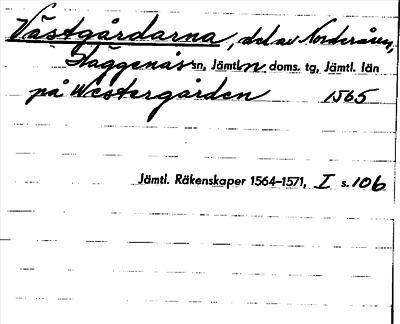 Västgårdarna, del av Norderåsen,
Häggenås sn, Jämtl. n doms. tg, Jämtl. län
på Westergården 1565
Jämtl. Räkenskaper 1564–1571, I s. 106